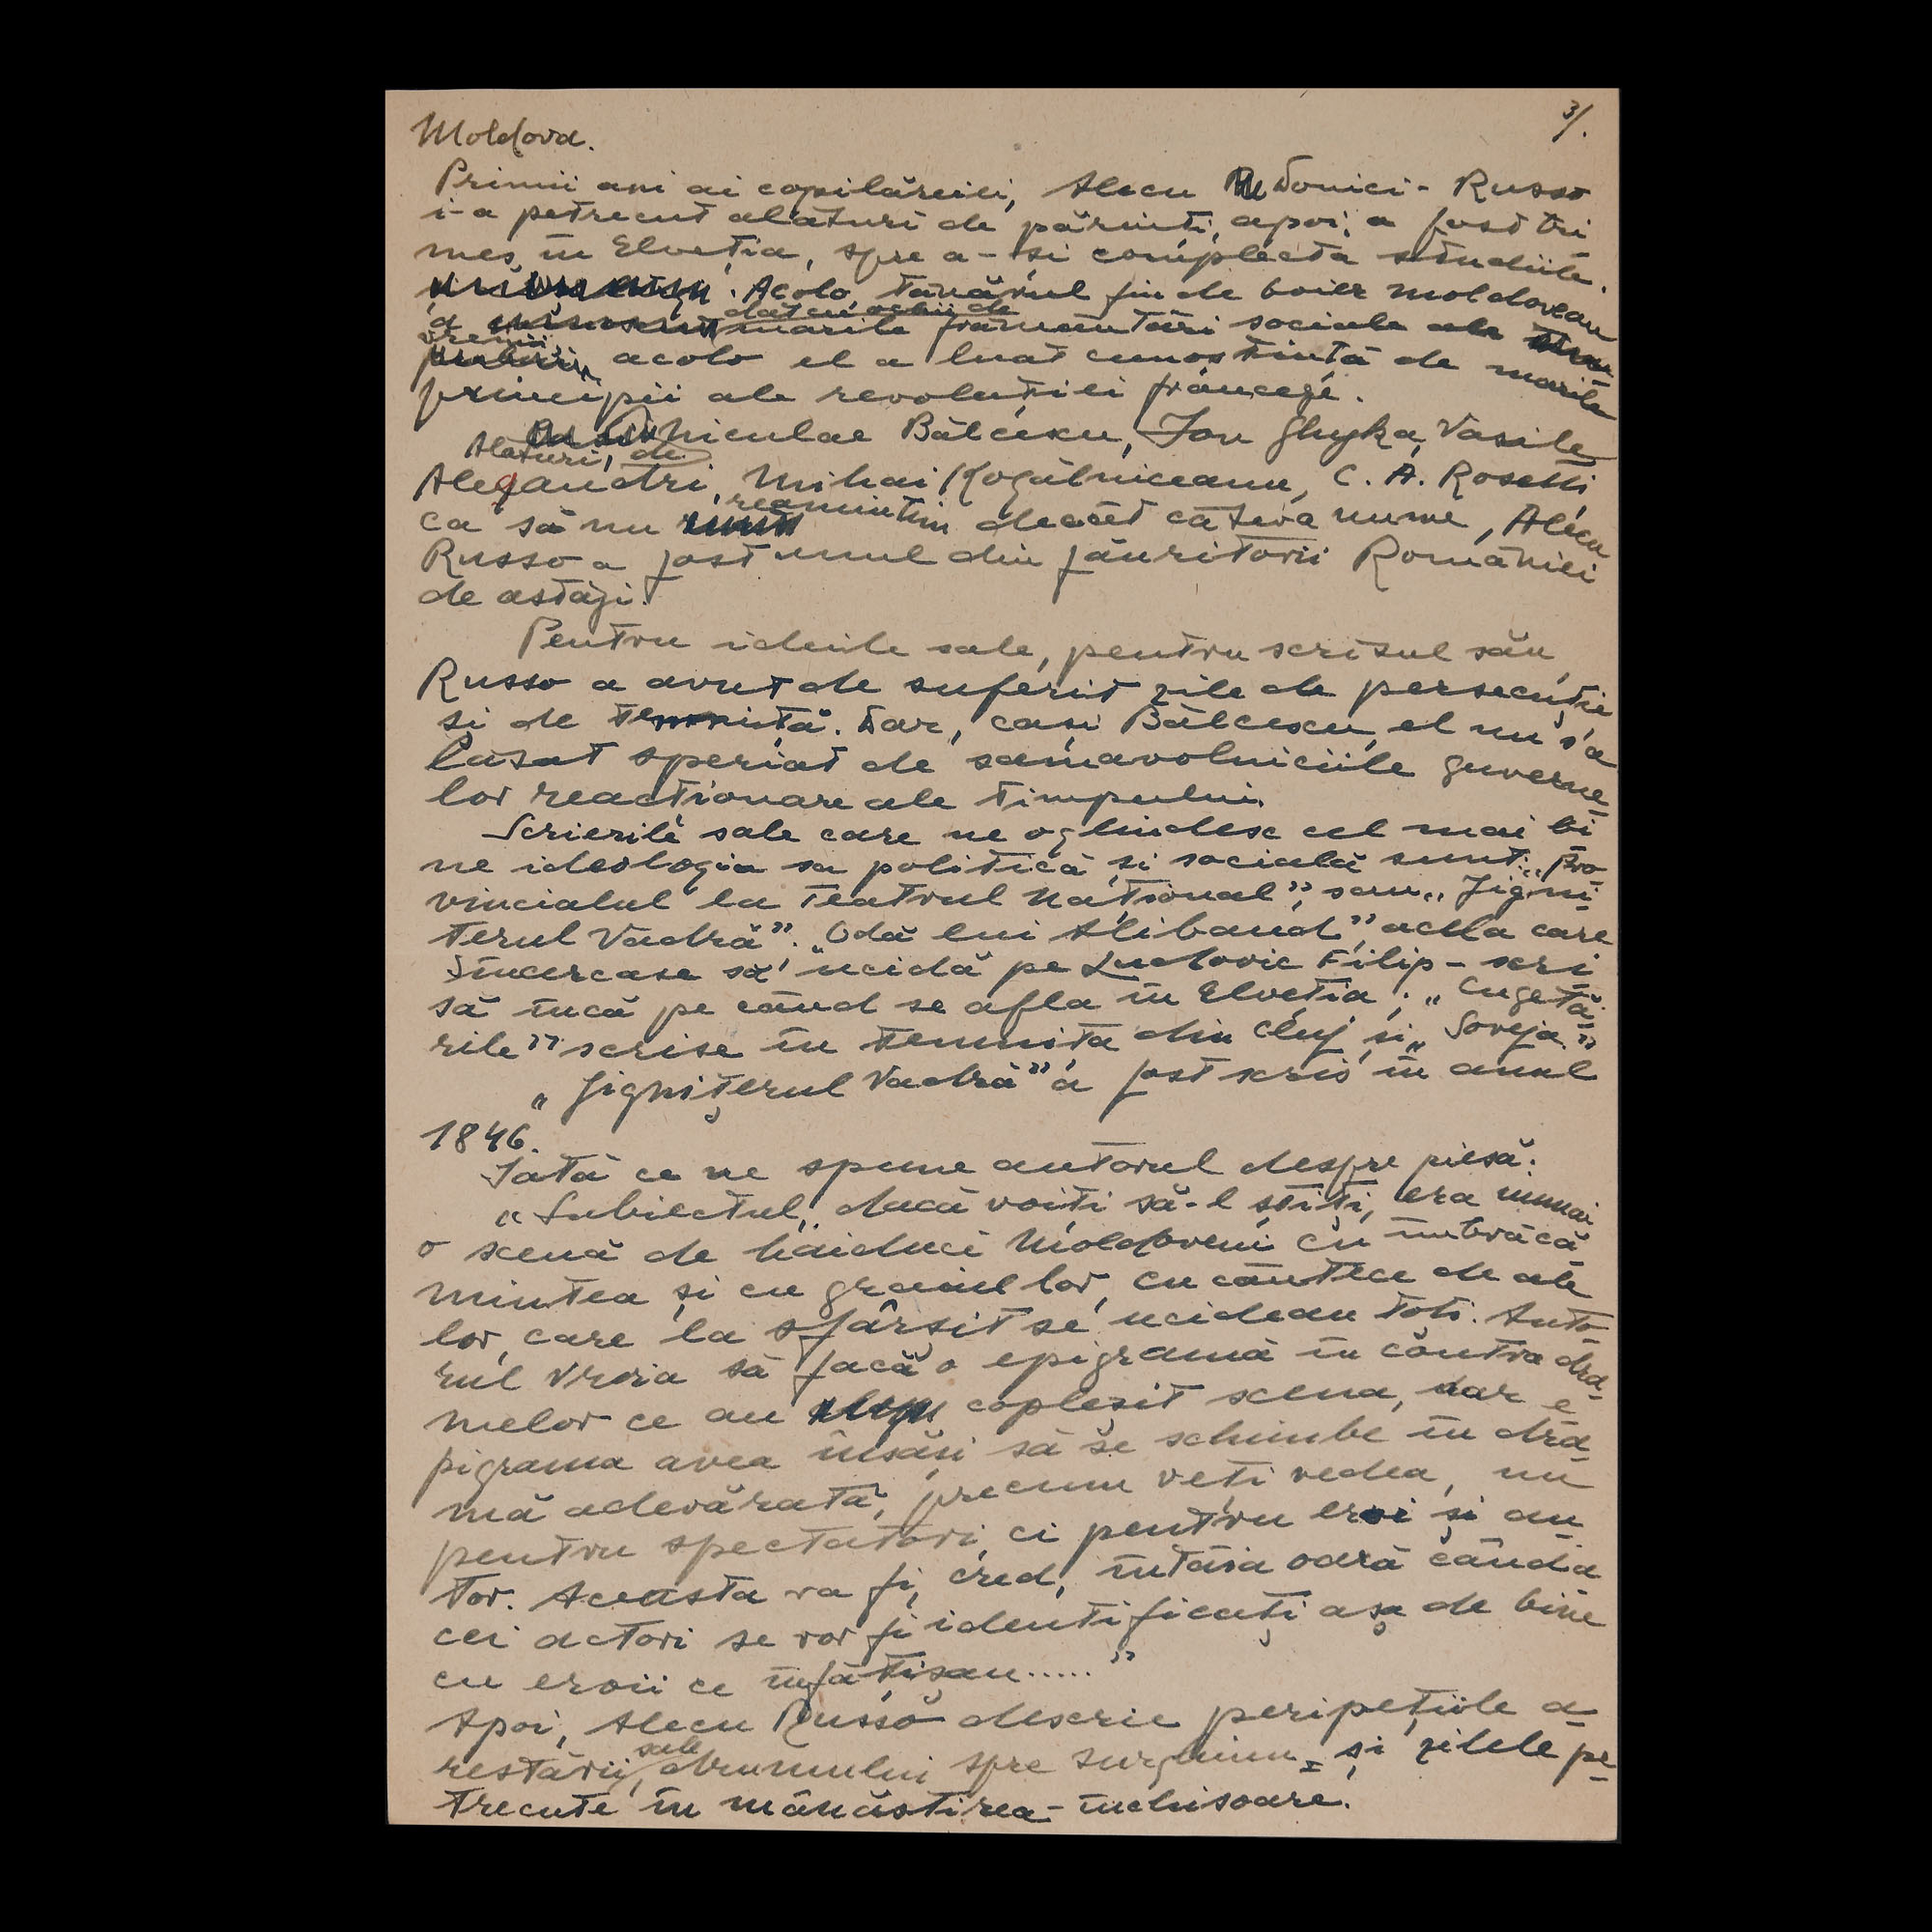 3/.
Moldova.
Primii ani ai copilăriei, Alecu Donici - Russo
i-a petrecut alături de părinți, apoi, a fost tri
mes, în Elveția, spre a-și complecta studiile.
Acolo, tanărul fiu de boier moldovean
a dat cu ochii de marile frământări sociale ale
vremii, acolo el a luat cunoștiință de marile
principii ale revoluției franceze.
Alături, de Niculae Bălcescu, Ion Ghyka, Vasile
Alecsandri, Mihai Kogălniceanu, C. A. Rosetti
ca să nu reamintim decât câteva nume, Alecu
Russo a fost unul din făuritorii României
de astăzi.
Pentru ideile sale, pentru scrisul său,
Russo a avut de suferit zile de persecuție
și de temniță. Dar, cași Bălcescu, el nu s'a
lăsat speriat de samavolniciile guverne-
lor reacționare ale timpului.
Scrierile sale care ne oglindesc cel mai bi
ne ideologia sa politică și socială sunt: „Pro-
vincialul la Teatrul Național”, sau „Jigni-
țerul Vadră”. „Odă lui Alibaud”, acela care
încercase să ucidă pe Ludovic Filip - scri
să încă pe când se afla în Elveția; „Cugetă-
rile” scrise în temnița din Cluj și „Soveja.”
„Jignițerul Vadră” a fost scris în anul
1846.
Iată ce ne spune autorul despre piesă:
„Subiectul, dacă voiți să-l știți, era numai
o scenă de haiduci Moldoveni cu îmbrăcă
mintea și cu graiul lor, cu cântece de ale
lor, care la sfârșit se ucideau toți. Auto-
rul vroia să facă o epigramă în contra dra-
melor ce au copleșit scena, dar e-
pigrama avea însăși să se schimbe în dra
mă adevărată, precum veți vedea, nu
pentru spectatori, ci pentru eroi și au-
tor. Aceasta va fi, cred, întâia oară când a
cei actori se vor fi identificați așa de bine
cu eroii ce înfățișau.....”
Apoi, Alecu Russo descrie peripețiile a-
restării sale, drumului spre surghiun - și zilele pe-
trecute în mănăstirea - închisoare.